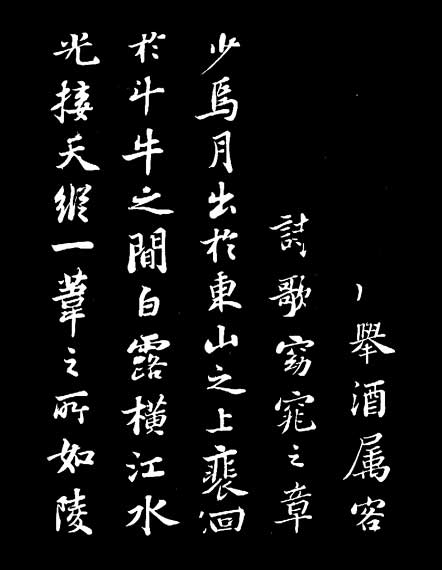 舉酒属客
詩歌窈窕之章
少焉月出於東山之上裴徊
於斗牛之間白露横江水
光接天縱一葦之所如陵